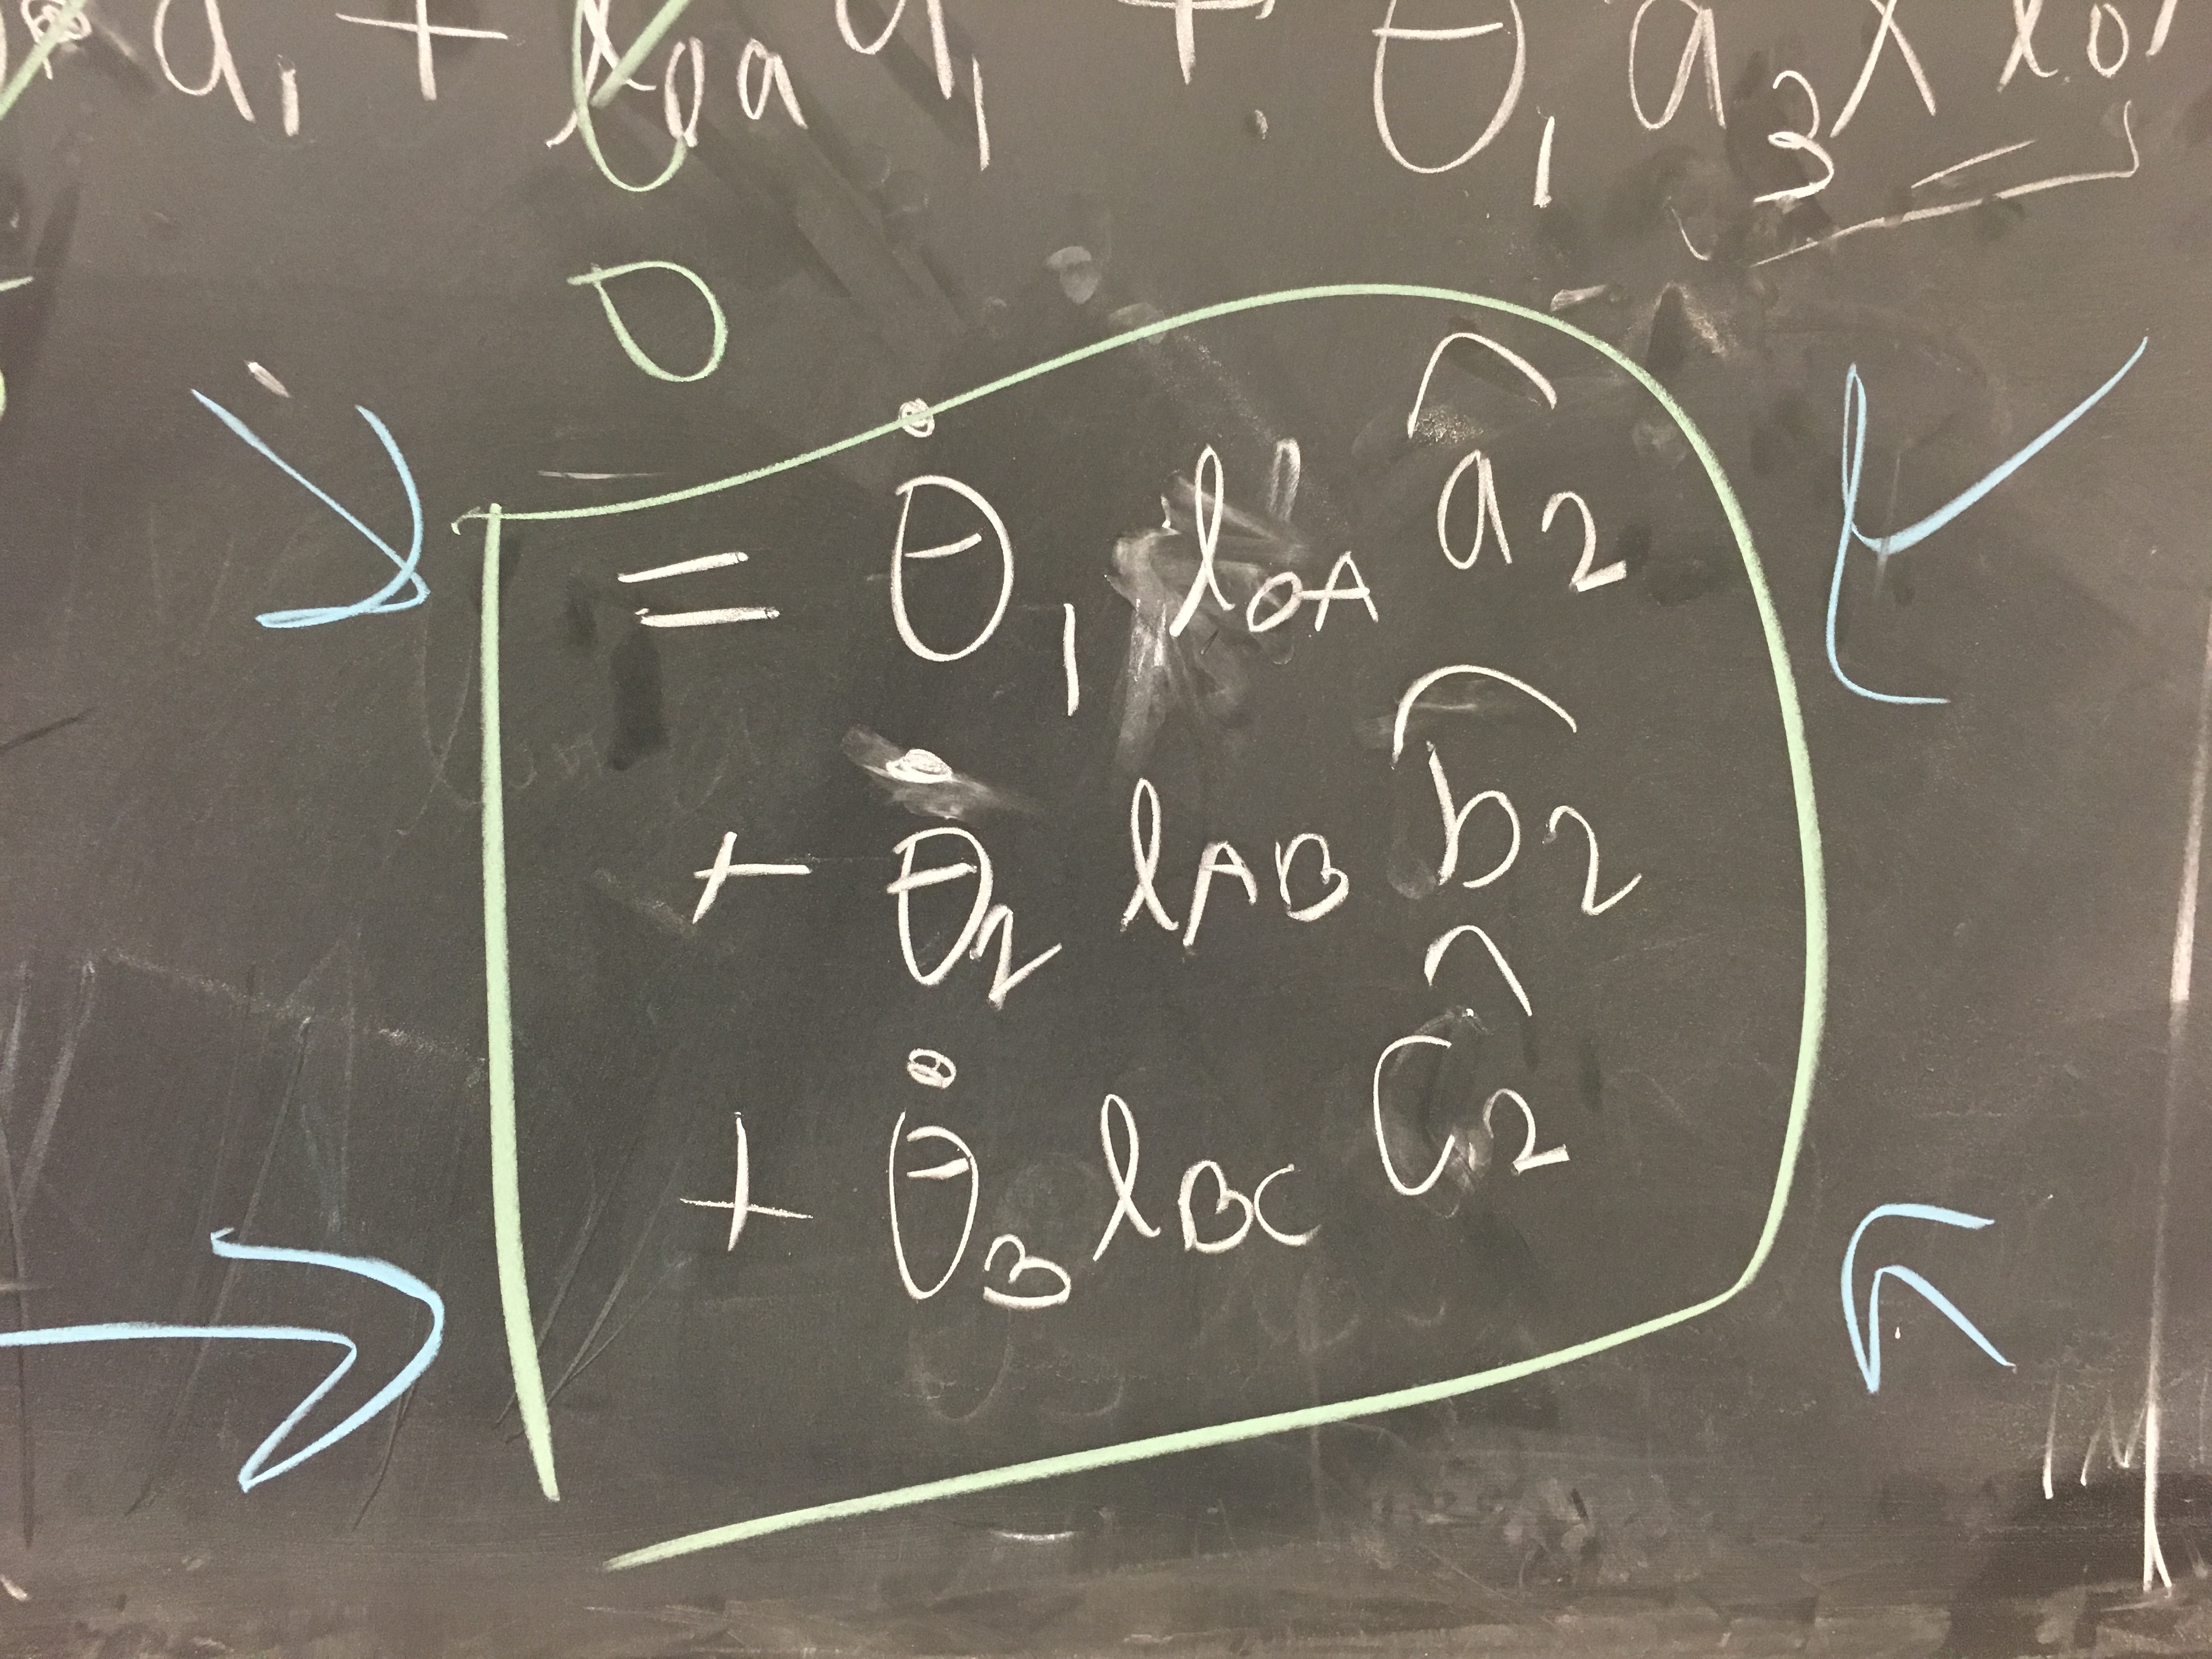 a₁ + l₀ₐ a₁ + θ₁ a₃ × l₀
0
= θ̇₁ l_OA â₂
+ θ̇₂ l_AB b̂₂
+ θ̇₃ l_BC ĉ₂